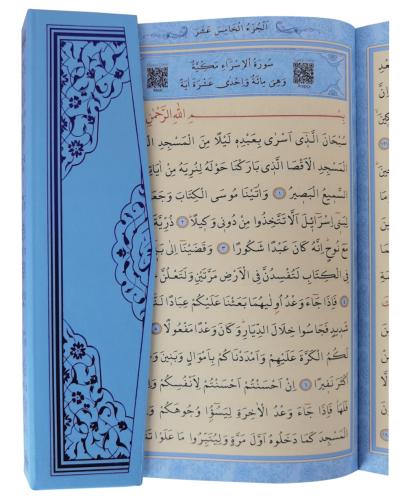 اَلْجُزْءُ الْخَامِسَ عَشَرَ
سُورَةُ الْاِسْرَاءِ مَكِّيَّةٌ
وَهِيَ مِائَةٌ وَاِحْدٰى عَشْرَةَ اٰيَةً
بِسْمِ اللّٰهِ الرَّحْمٰنِ
سُبْحَانَ الَّذٖٓي اَسْرٰى بِعَبْدِهٖ لَيْلًا مِنَ الْمَسْجِدِ
الْمَسْجِدِ الْاَقْصَا الَّذٖي بَارَكْنَا حَوْلَهُ لِنُرِيَهُ مِنْ اٰيَاتِنَا
السَّمٖيعُ الْبَصٖيرُ ١ وَاٰتَيْنَا مُوسَى الْكِتَابَ وَجَعَلْنَاهُ
لِبَنٖٓي اِسْرَٓائٖلَ اَلَّا تَتَّخِذُوا مِنْ دُونٖي وَكٖيلًا ٢ ذُرِّيَّةَ
مَعَ نُوحٍ اِنَّهُ كَانَ عَبْدًا شَكُورًا ٣ وَقَضَيْنَٓا اِلٰى
فِي الْكِتَابِ لَتُفْسِدُنَّ فِي الْاَرْضِ مَرَّتَيْنِ وَلَتَعْلُنَّ
٤ فَاِذَا جَٓاءَ وَعْدُ اُولٰيهُمَا بَعَثْنَا عَلَيْكُمْ عِبَادًا
شَدٖيدٍ فَجَاسُوا خِلَالَ الدِّيَارِ وَكَانَ وَعْدًا مَفْعُولًا ٥
لَكُمُ الْكَرَّةَ عَلَيْهِمْ وَاَمْدَدْنَاكُمْ بِاَمْوَالٍ وَبَنٖينَ
اَكْثَرَ نَفٖيرًا ٦ اِنْ اَحْسَنْتُمْ اَحْسَنْتُمْ لِاَنْفُسِكُمْ
فَلَهَا فَاِذَا جَٓاءَ وَعْدُ الْاٰخِرَةِ لِيَسُٓؤُا وُجُوهَكُمْ
الْمَسْجِدَ كَمَا دَخَلُوهُ اَوَّلَ مَرَّةٍ وَلِيُتَبِّرُوا مَا عَلَوْا